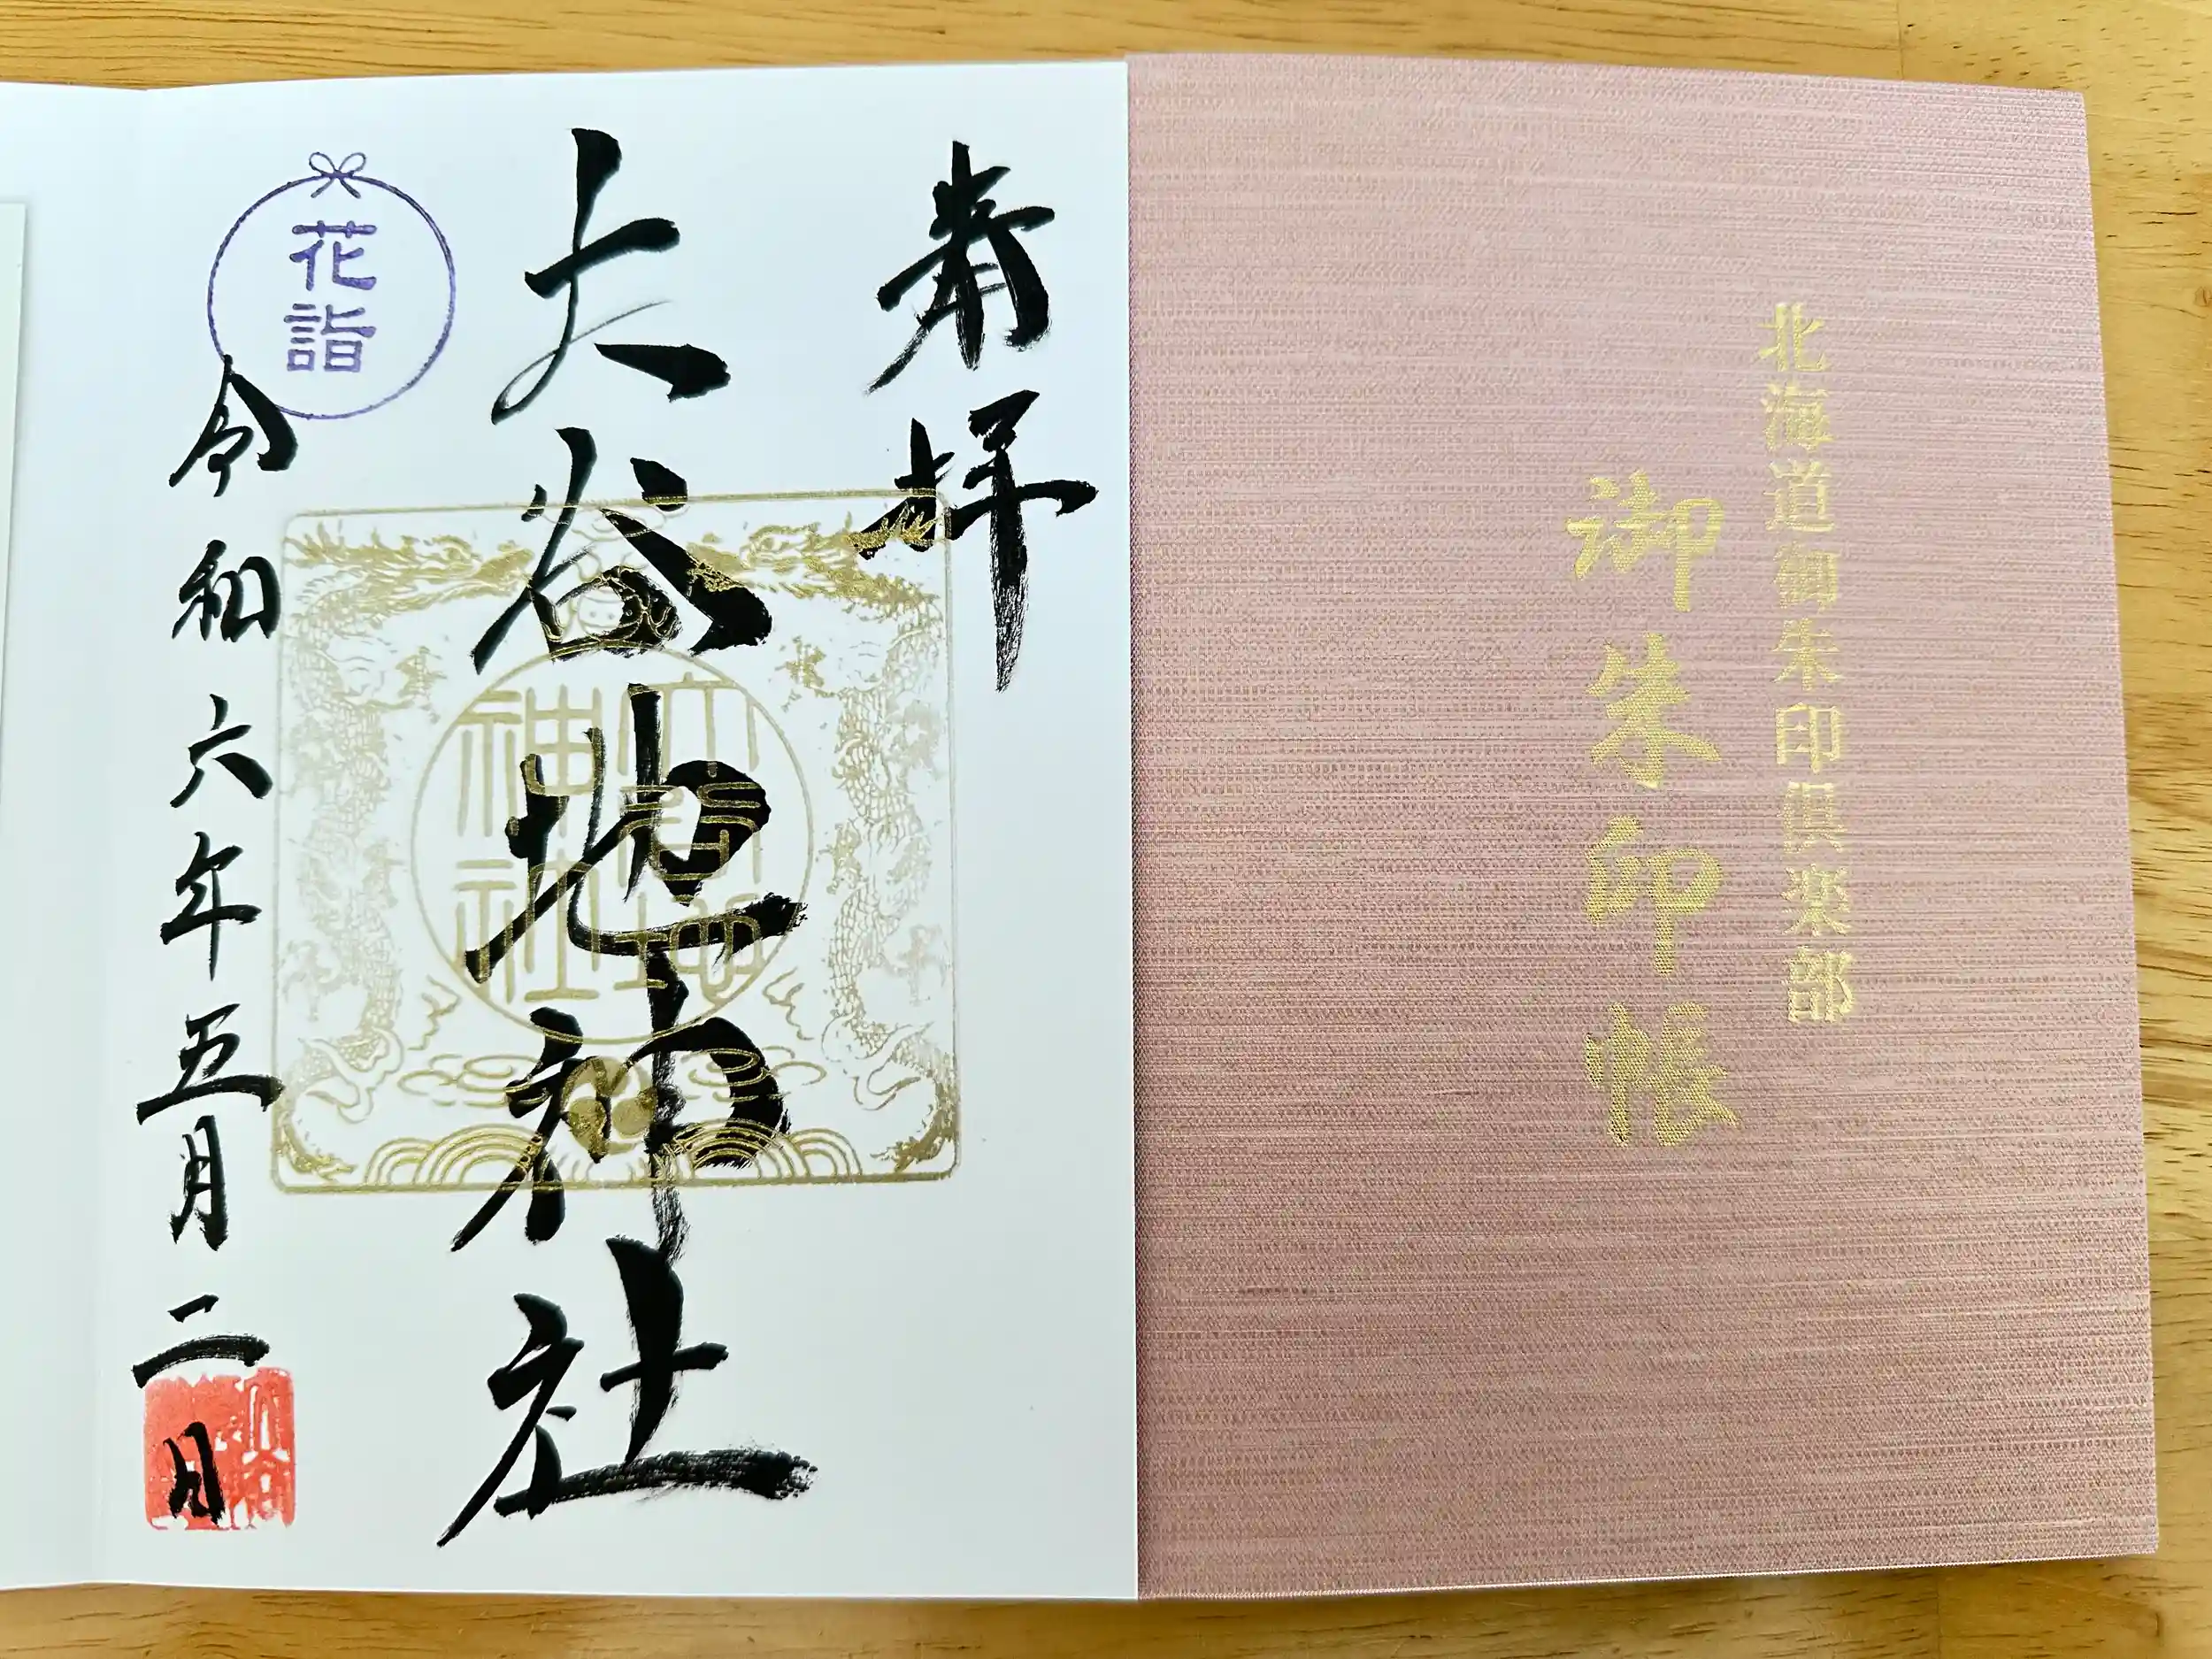 北海道御朱印倶楽部
御朱印帳
奉拝
大谷地神社
大谷地
神社
花詣
令和六年五月二日